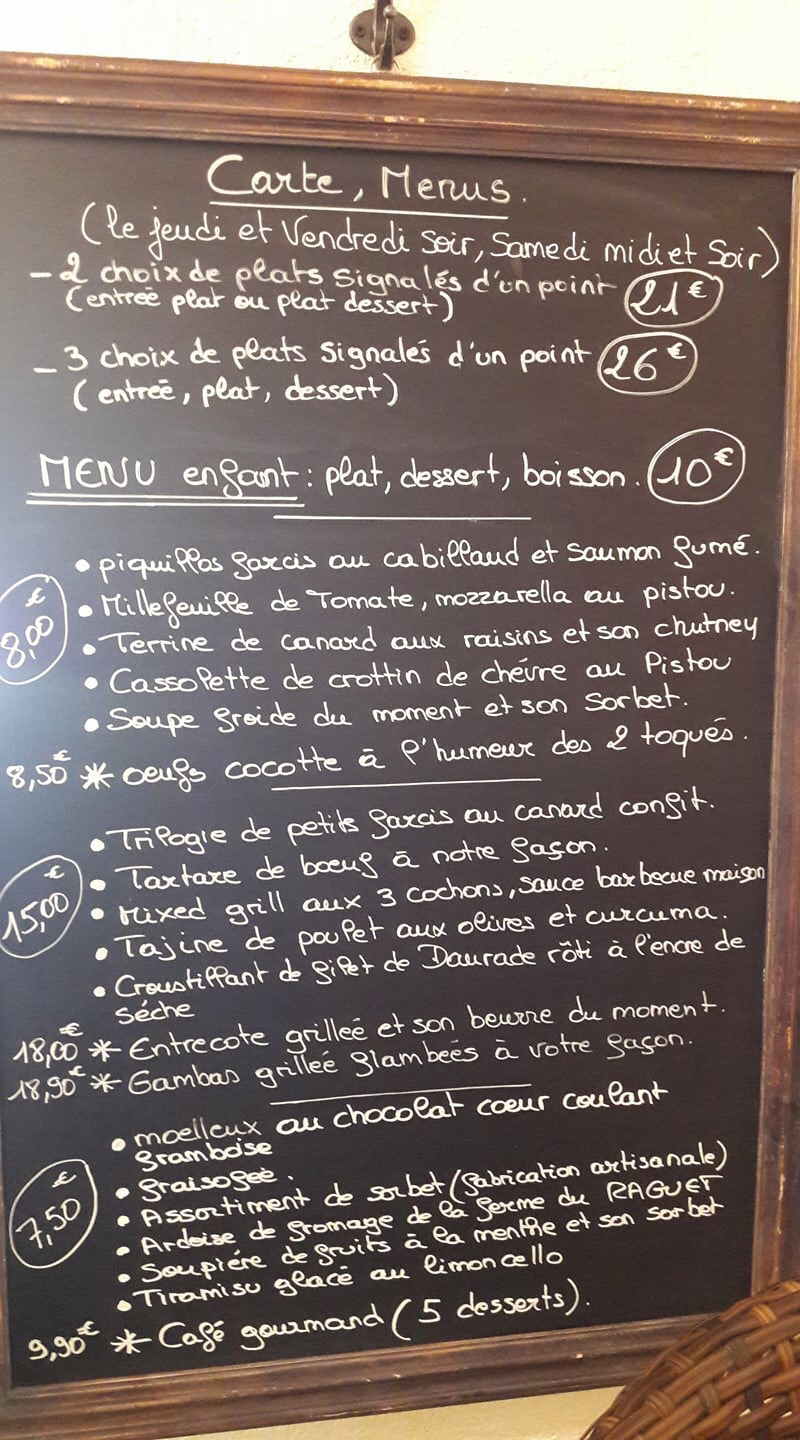 Carte, Menus.
(le jeudi et Vendredi soir, Samedi midi et Soir)
- 2 choix de plats signalés d'un point 21€
(entreé plat ou plat dessert)
- 3 choix de plats signalés d'un point 26€
(entreé, plat, dessert)
MENU enfant : plat, dessert, boisson. 10€
• piquillos farcis au cabillaud et saumon fumé.
8,00€
• Millefeuille de Tomate, mozzarella au pistou.
• Terrine de canard aux raisins et son chutney
• Cassolette de crottin de chévre au Pistou
• Soupe froide du moment et son sorbet.
8,50€ * oeufs cocotte à l'humeur des 2 toqués.
• Trilogie de petits farcis au canard confit.
• Tartare de boeuf à notre façon.
15,00€
• Mixed grill aux 3 cochons, sauce barbecue maison
• Tajine de poulet aux olives et curcuma.
• Croustillant de filet de Daurade rôti à l'encre de
séche
18,00€ * Entrecote grilleé et son beurre du moment.
18,90€ * Gambas grilleé flambeés à votre façon.
• moelleux au chocolat coeur coulant
framboise
• fraisogeé.
7,50€
• Assortiment de sorbet (fabrication artisanale)
• Ardoise de fromage de la ferme du RAGUET
• Soupiére de fruits à la menthe et son sorbet
• Tiramisu glacé au limoncello
9,90€ * Café gourmand (5 desserts).